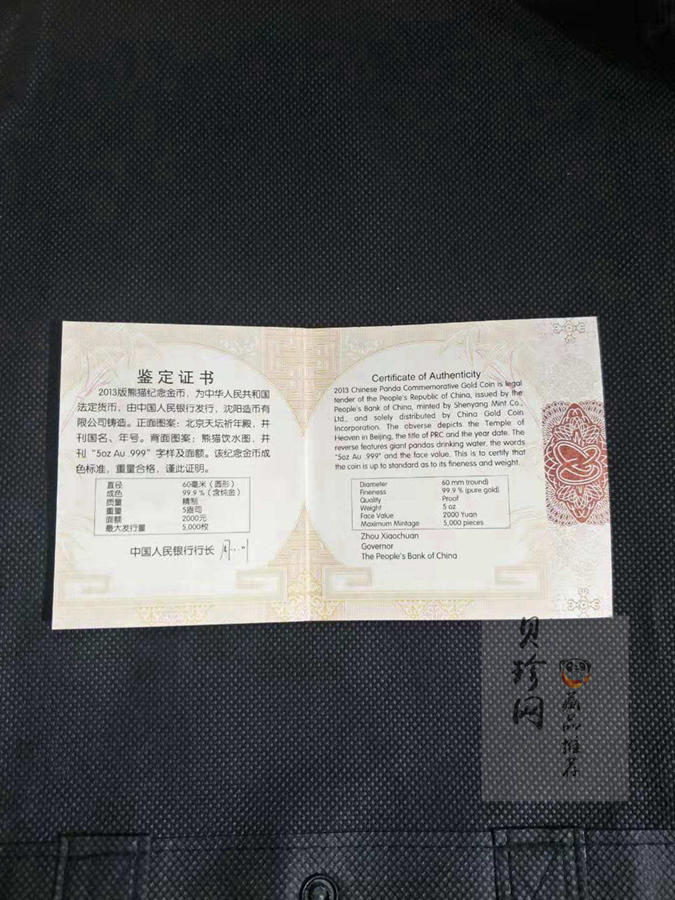 鉴定证书
2013版熊猫纪念金币，为中华人民共和国
法定货币，由中国人民银行发行，沈阳造币有
限公司铸造。正面图案：北京天坛祈年殿，并
刊国名、年号。背面图案：熊猫饮水图，并
刊“5oz Au .999”字样及面额。该纪念金币成
色标准，重量合格，谨此证明。
直径 60毫米（圆形）
成色 99.9％（含纯金）
质量 精制
重量 5盎司
面额 2000元
最大发行量 5,000枚
中国人民银行行长
Certificate of Authenticity
2013 Chinese Panda Commemorative Gold Coin is legal
tender of the People's Republic of China, issued by the
People's Bank of China, minted by Shenyang Mint Co.,
Ltd., and solely distributed by China Gold Coin
Incorporation. The obverse depicts the Temple of
Heaven in Beijing, the title of PRC and the year date. The
reverse features giant pandas drinking water, the words
"5oz Au .999" and the face value. This is to certify that
the coin is up to standard as to its fineness and weight.
Diameter 60 mm (round)
Fineness 99.9 % (pure gold)
Quality Proof
Weight 5 oz
Face Value 2000 Yuan
Maximum Mintage 5,000 pieces
Zhou Xiaochuan
Governor
The People's Bank of China
贝珍网
藏品推荐